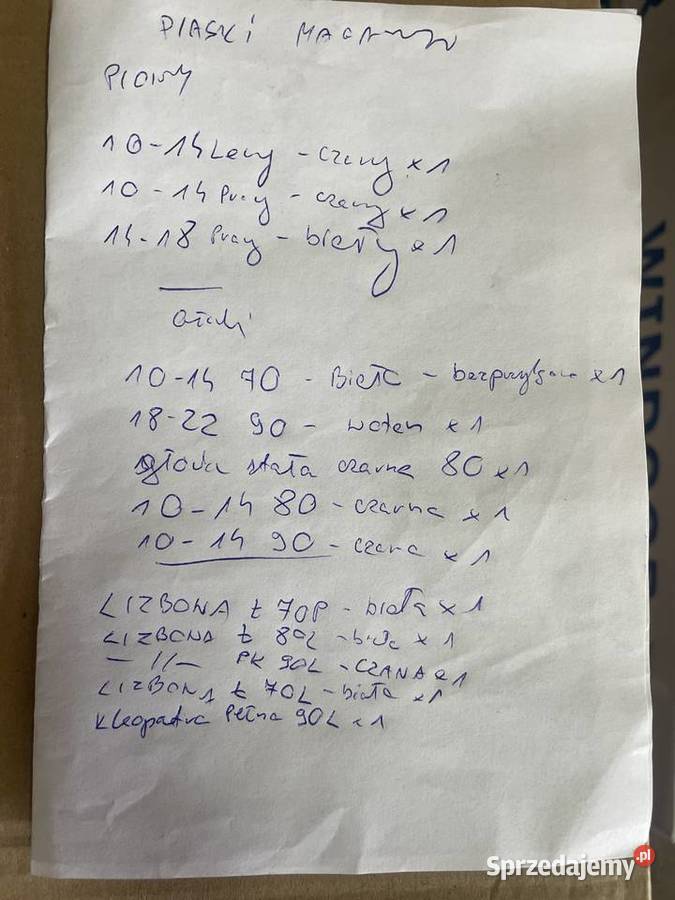 PIASKI MAGAZYN
PIONY
10-14 Lewy - czarny x1
10-14 Prawy - czarny x1
14-18 Prawy - biały x1
10-14 70 - Biała - bezprzylgowa x1
18-22 90 - woten x1
głowa stała czarna 80 x1
10-14 80 - czarna x1
10-14 90 - czarna x1
LIZBONA Ł 70P - biała x1
LIZBONA Ł 80L - biała x1
-//- PK 90L - CZARNA x1
LIZBONA Ł 70L - biała x1
Kleopatra Pełna 90L x1
WINDOOR
Sprzedajemy.pl